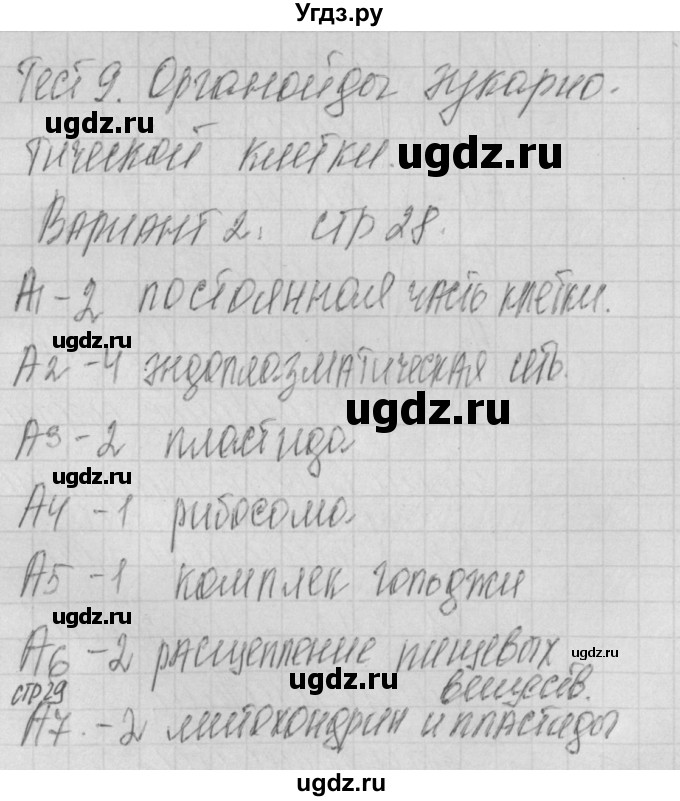 Угдз.ру
Тест 9. Органойды эукарио-
ugdz.ru
тической клетки.
ugdz.ru
Вариант 2. стр 28.
ugdz.ru
А1 - 2 постоянная часть клетки.
ugdz.ru
А2 - 4 эндоплазматическая сеть.
ugdz.ru
А3 - 2 пластида
ugdz.ru
А4 - 1 рибосома
А5 - 1 комплек гольджи
ugdz.ru
А6 - 2 расщепление пищевых
ugdz.ru
веществ.
стр 29
ugdz.ru
А7. - 2 митохондрии и пластиды
ugdz.ru